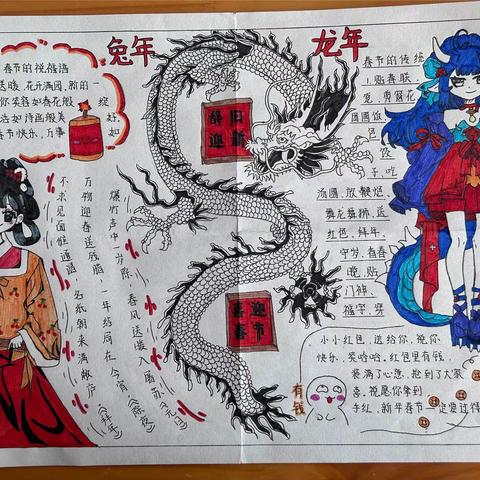 兔年
龙年
春节的祝福语
送暖,花开满园,新的一
你笑容如春花般绽
活如诗画般美好,
春节快乐,万事如
辞旧
迎新
喜迎
春节
春节的传统
1.贴春联
剪窗花
团圆饭
包饺
子、吃
汤圆、放鞭炮、
舞龙舞狮、逛
红包、拜年、
守岁、看春
晚、贴
门神、
福字、穿
爆竹声中一岁除,春风送暖入屠苏《元日》
万物迎春送残腊,一年结局在今宵《除夜》
不求见面惟通谒,名纸朝来满敝庐《拜年》
有钱
小小红包,送给你,祝你
快乐,笑哈哈。红包里有钱
装满了心意,抢到了大家
喜,祝愿你拿到
手红,新年春节一定要过得